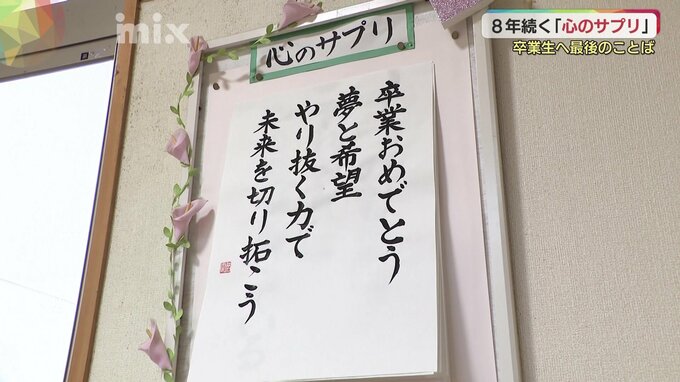 mix
8年続く「心のサプリ」
卒業生へ最後のことば
心のサプリ
卒業おめでとう
夢と希望
やり抜く力で
未来を切り拓こう